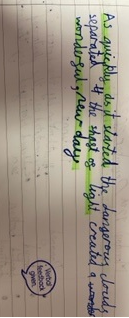 As quickly as it started the dangerous clouds
separated & the shaft of light created a wonder
wonderful, new day.
Verbal
feedback
given